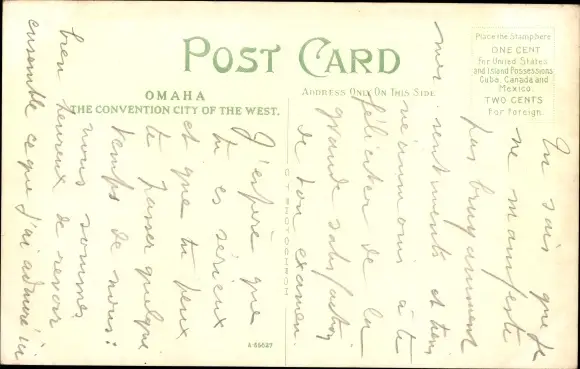 POST CARD
OMAHA
THE CONVENTION CITY OF THE WEST.
ADDRESS ONLY ON THIS SIDE
Place the Stamp here
ONE CENT
for United States
and Island Possessions
Cuba, Canada and
Mexico.
TWO CENTS
For Foreign.
C.T. PHOTOCHROM
A-55627
Tu sais que je
ne manifeste
pas bruyamment
mes sentiments et tiens
néanmoins à te
féliciter de la
grande satisfaction
de ton examen.
J'espère que
tu es sérieux
et que tu peux
te passer quelque
temps de nous:
nous sommes
bien heureux de revoir
ensemble ce que j'ai admiré